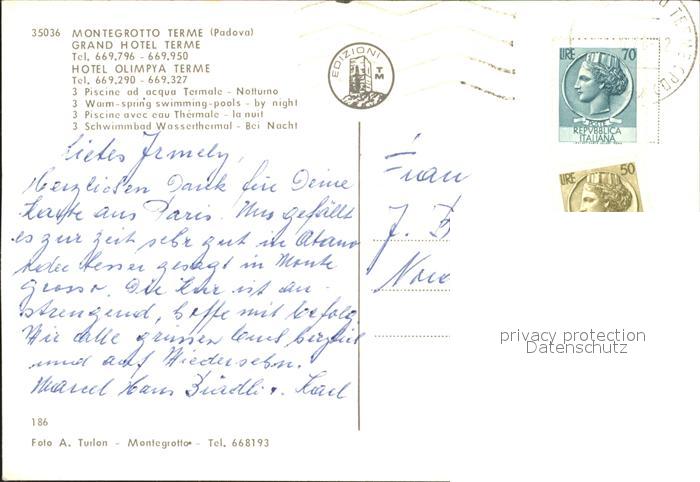 35036 MONTEGROTTO TERME (Padova)
GRAND HOTEL TERME
Tel. 669.796 - 669.950
HOTEL OLIMPYA TERME
Tel. 669.290 - 669.327
3 Piscine ad acqua Termale - Notturno
3 Warm-spring swimming-pools - by night
3 Piscine avec eau Thérmale - la nuit
3 Schwimmbad Wasserthermal - Bei Nacht
EDIZIONI
TM
LIRE 70
POSTE
REPVBBLICA
ITALIANA
LIRE 50
Liebes Irmely,
Herzlichen Dank für Deine
Karte aus Paris. Uns gefällt
es zur Zeit sehr gut in Abano
oder besser gesagt in Monte
grosso. Die Kur ist an-
strengend, hoffe mit Erfolg.
Wir alle grüssen herzlich
und auf Wiedersehn.
Marcel Hans Karl
Frau
J. B
186
Foto A. Turlon - Montegrotto - Tel. 668193
privacy protection
Datenschutz